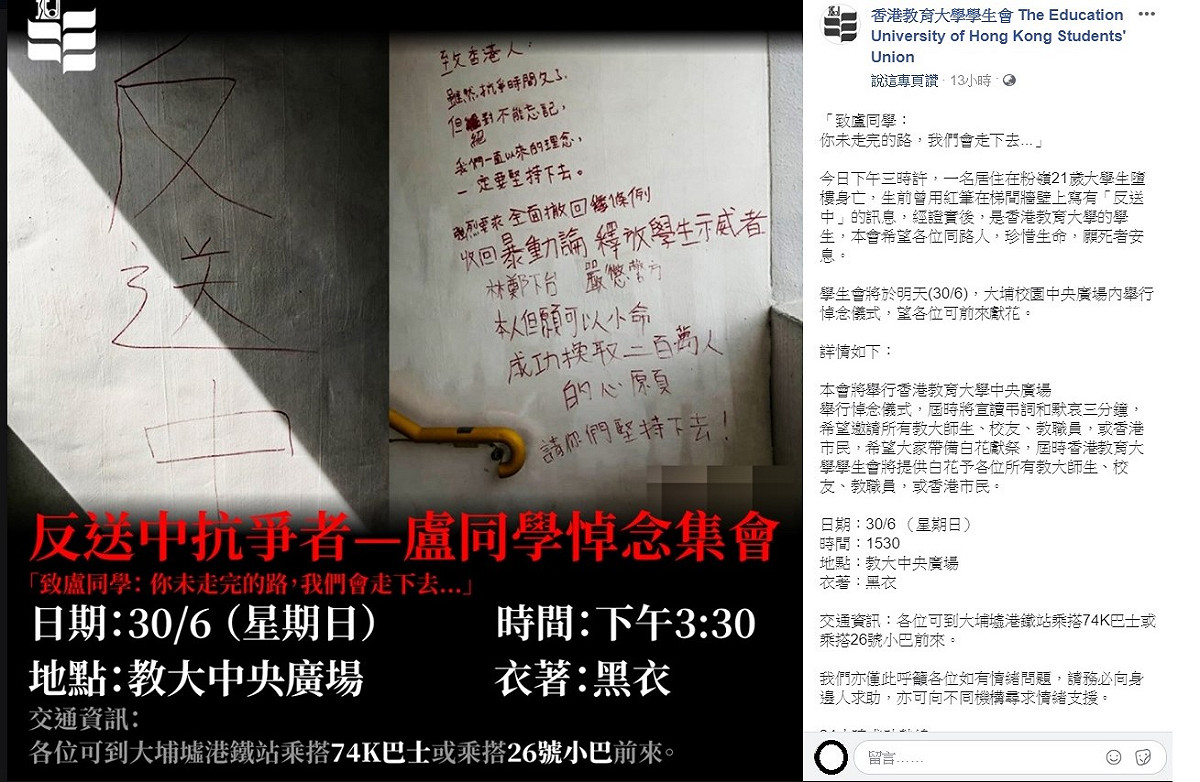 反
送
中
致香港人：
雖然抗爭時間久了，
但絕對不能忘記，
我們一直以來的理念，
一定要堅持下去。
強烈要求 全面撤回條例
收回暴動論 釋放學生示威者
林鄭下台 嚴懲警方
本人但願可以小命
成功換取二百萬人
的心願
請你們堅持下去！
反送中抗爭者—盧同學悼念集會
「致盧同學：你未走完的路，我們會走下去...」
日期：30/6（星期日）
時間：下午3:30
地點：教大中央廣場
衣著：黑衣
交通資訊：
各位可到大埔墟港鐵站乘搭74K巴士或乘搭26號小巴前來。
香港教育大學學生會 The Education
University of Hong Kong Students'
Union
說這專頁讚 · 13小時 ·
「致盧同學：
你未走完的路，我們會走下去...」
今日下午三時許，一名居住在粉嶺21歲大學生墮
樓身亡，生前曾用紅筆在梯間牆壁上寫有「反送
中」的訊息，經證實後，是香港教育大學的學
生，本會希望各位同路人，珍惜生命，願死者安
息。
學生會將於明天(30/6)，大埔校園中央廣場內舉行
悼念儀式，望各位可前來獻花。
詳情如下：
本會將舉行香港教育大學中央廣場
舉行悼念儀式，屆時將宣讀弔詞和默哀三分鐘，
希望邀請所有教大師生、校友、教職員，或香港
市民，希望大家帶備白花獻祭，屆時香港教育大
學學生會將提供白花予各位所有教大師生、校
友、教職員，或香港市民。
日期：30/6 （星期日）
時間：1530
地點：教大中央廣場
衣著：黑衣
交通資訊：各位可到大埔墟港鐵站乘搭74K巴士或
乘搭26號小巴前來。
我們亦僅此呼籲各位如有情緒問題，請務必向身
邊人求助，亦可向不同機構尋求情緒支援。
留言......